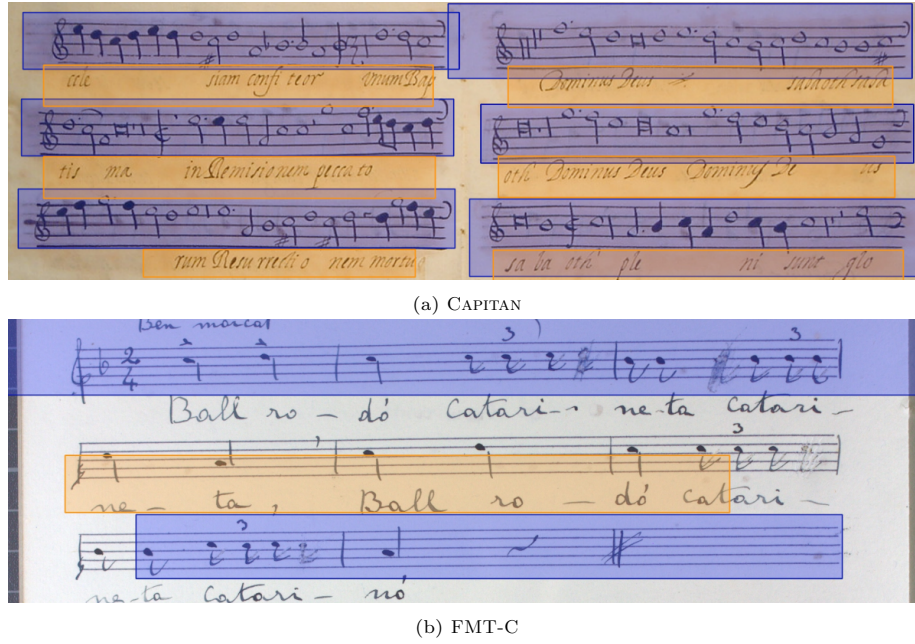 cele siam confiteor vnum Bap
tis ma in Remisionem peccato
rum Resurrectio nem mortuo
Dominus Deus sabaoth saba
oth Dominus Deus Dominus De us
sa ba oth ple ni sunt glo
(a) CAPITAN
Ben marcat
3 3
2
4
Ball ro – dó Catari – ne-ta catari –
3
ne – ta, Ball ro – dó catari –
3
ne-ta catari – nó
(b) FMT-C